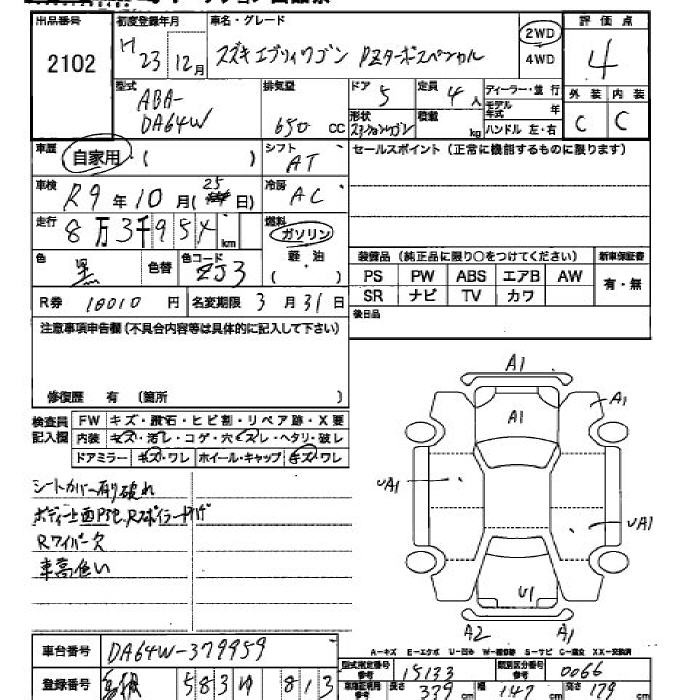 出品番号 2102
初度登録年月 H 23 12月
車名・グレード スズキ エブリィワゴン PZターボスペシャル
2WD
4WD
評価点 4
外装 C 内装 C
型式 ABA-DA64W
排気量 650 CC
ドア 5
定員 4人
ディーラー・並行
モデル年式 年
形状
積載 kg
ハンドル 左・右
車歴 自家用・( )
シフト AT
セールスポイント(正常に機能するものに限ります)
車検 R9年10月(25日)
冷房 AC
走行 8万3千95 km
燃料 ガソリン
軽・油
( )
色 黒 色替 色コード ZJ3
装備品(純正品に限り○をつけてください) 新車保証書
PS PW ABS エアB AW 有・無
SR ナビ TV カワ
R券 10010 円 名変期限 3月31日
後日品
注意事項申告欄(不具合内容等は具体的に記入して下さい)
修復歴 有 (箇所 )
検査員記入欄
FW キズ・飛石・ヒビ割・リペア跡・X要
内装 キズ・汚レ・コゲ・穴・スレ・ヘタリ・破レ
ドアミラー キズ・ワレ ホイール・キャップ キズ・ワレ
シートカバー有り破れ
Rワイパー欠
車高低い
A1
A1
A1
UA1
UA1
U1
A2
A1
A-キズ E-エクボ U-凹み W-補修跡 S-サビ C-腐食 XX-交換済
車台番号 DA64W-379959
型式指定番号 参考 15133 類別区分番号 参考 0066
登録番号 583 813
長さ 339 cm 幅 147 cm 高さ 179 cm